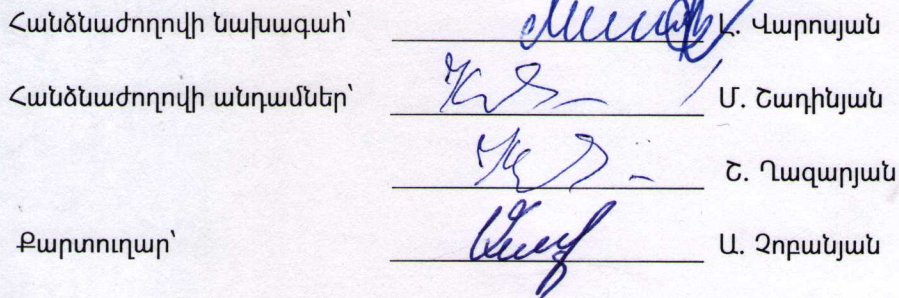 Հանձնաժողովի նախագահ՝ Լ. Վարոսյան
Հանձնաժողովի անդամներ՝ Մ. Շադինյան
Շ. Ղազարյան
Քարտուղար՝ Ա. Չոբանյան